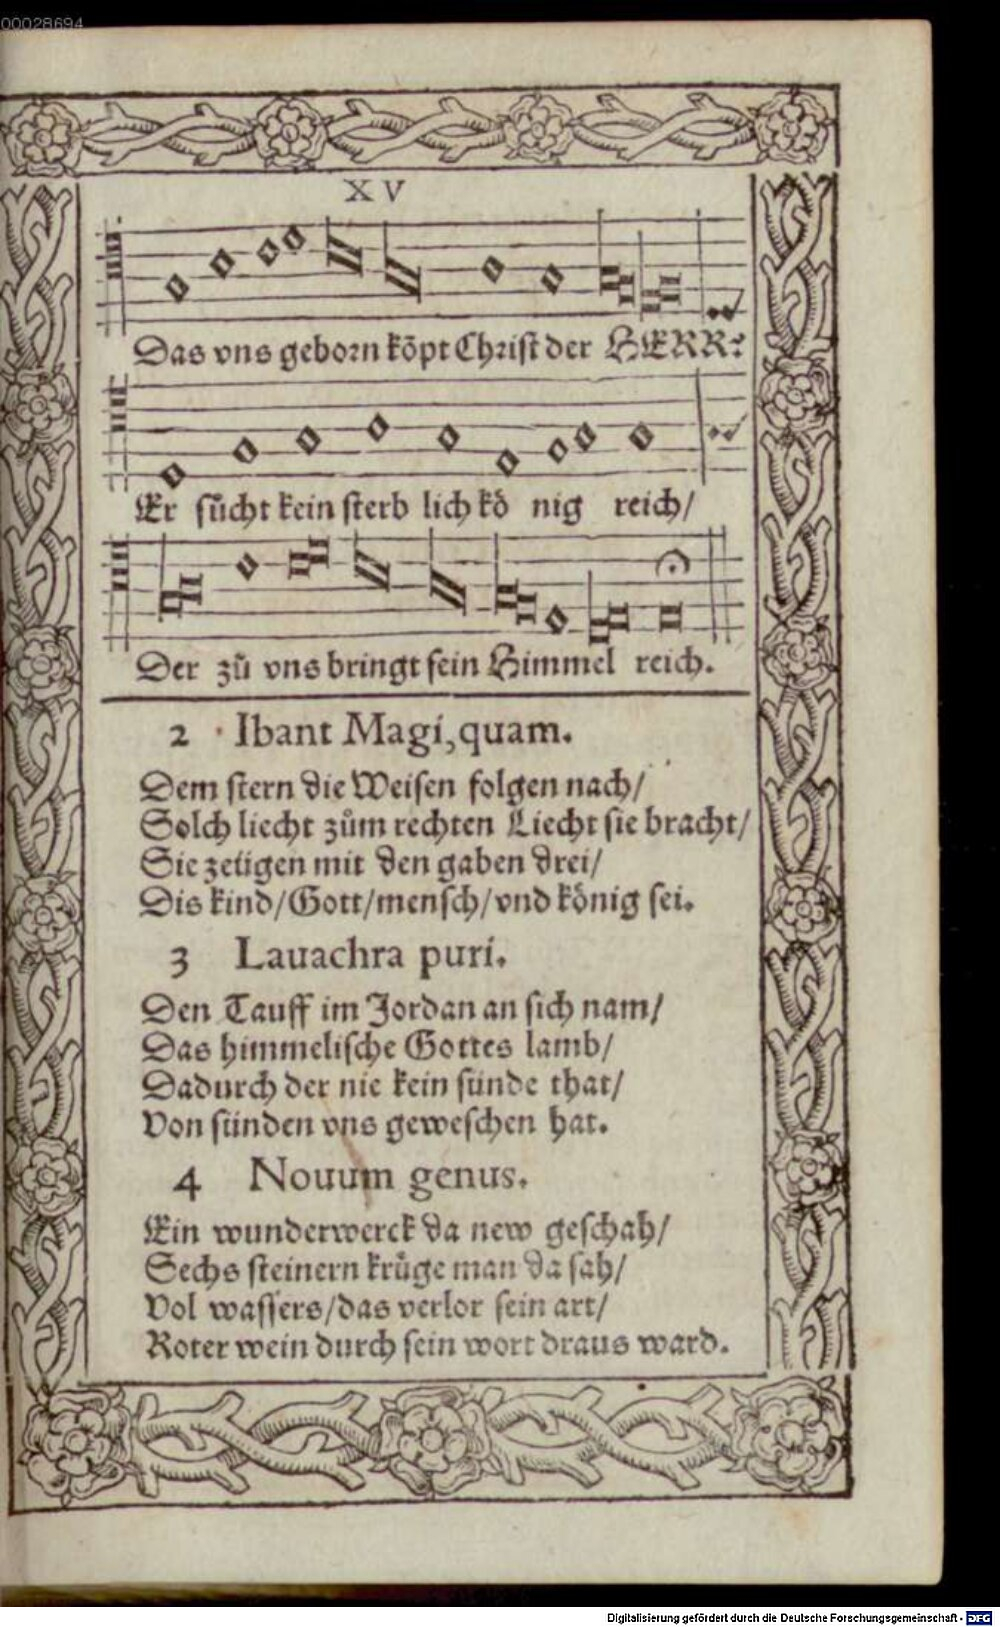 00028694
XV
Das vns geborn kõpt Christ der HERR:
Er sücht kein sterb lich kö nig reich/
Der zů vns bringt sein Himmel reich.
2 Ibant Magi, quam.
Dem stern die Weisen folgen nach/
Solch liecht zům rechten Liecht sie bracht/
Sie zeügen mit den gaben drei/
Dis kind/Gott/mensch/vnd kônig sei.
3 Lauachra puri.
Den Tauff im Jordan an sich nam/
Das himmelische Gottes lamb/
Dadurch der nie kein sünde that/
Von sünden vns geweschen hat.
4 Nouum genus.
Ein wunderwerck da new geschah/
Sechs steinern krüge man da sah/
Vol wassers/das verlor sein art/
Roter wein durch sein wort draus ward.
Digitalisierung gefördert durch die Deutsche Forschungsgemeinschaft - DFG